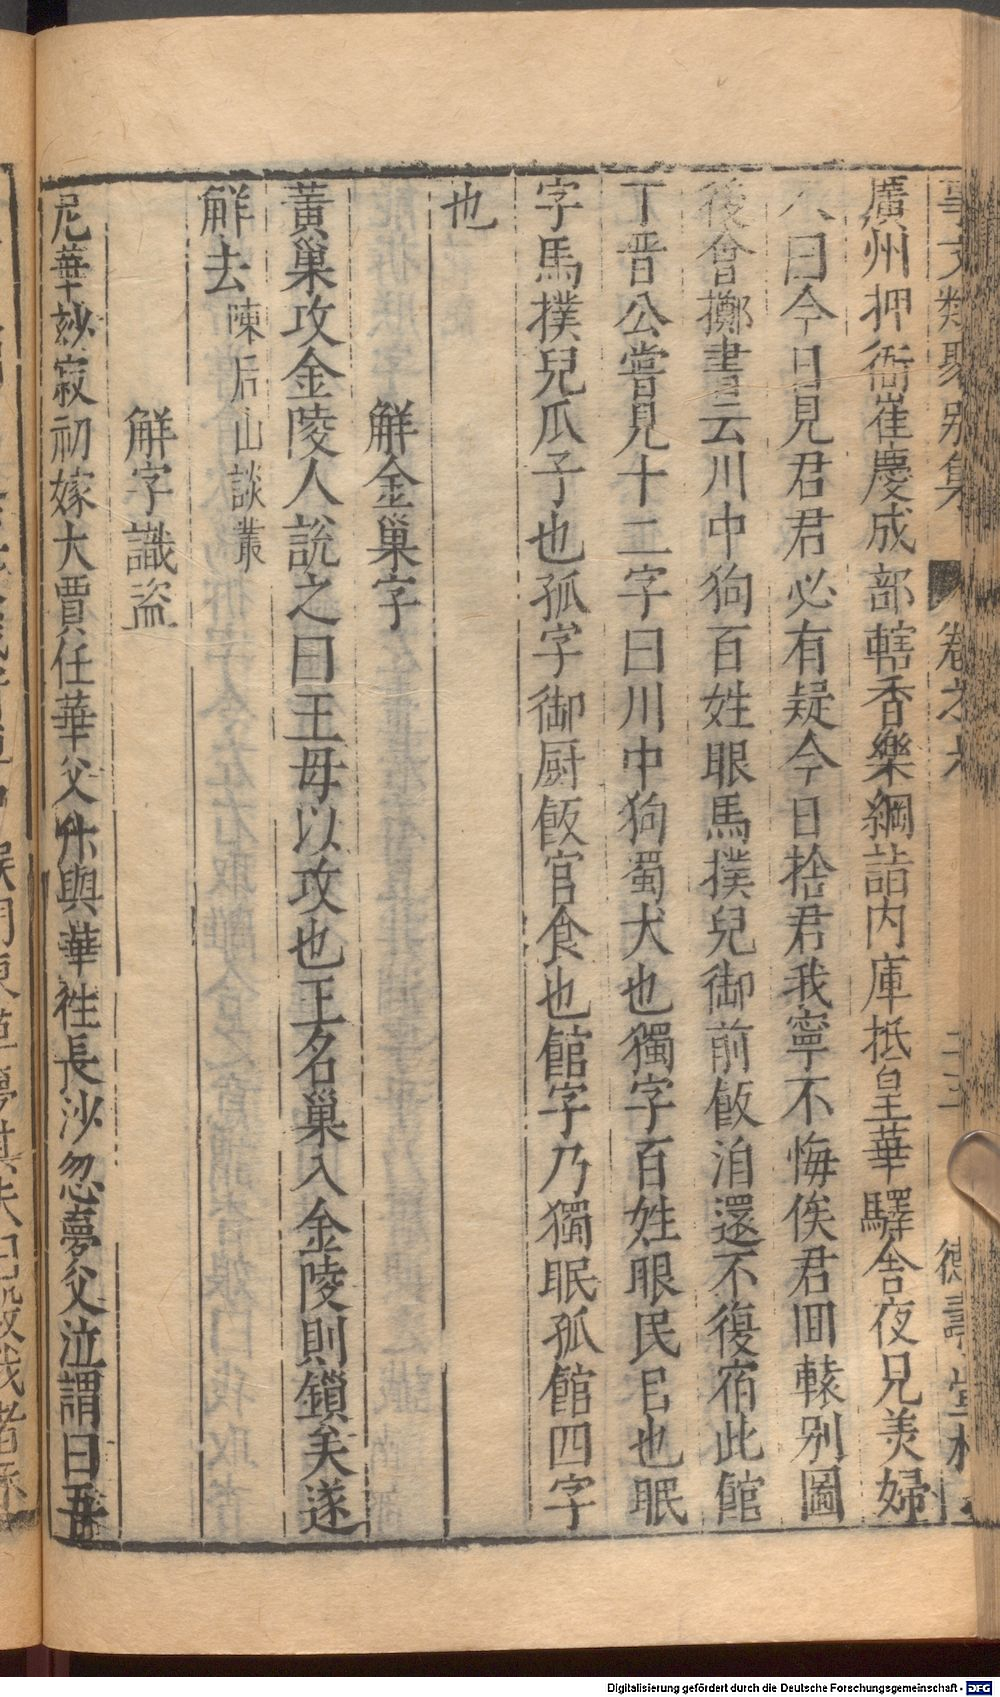 事文類聚别集 卷之六 二十二 德壽堂梓
廣州押衙崔慶成部轄香樂綱詣内庫抵皇華驛舎夜兄羙婦
人曰今日見君君必有疑今日捨君我寧不悔俟君囬轅别圖
後會擲書云川中狗百姓眼馬撲兒御前飯洎還不復宿此館
丁晋公嘗見十二字曰川中狗蜀犬也獨字百姓眼民目也眠
字馬撲兒瓜子也孤字御厨飯官食也館字乃獨眠孤館四字
也
觧金巢字
黄巢攻金陵人說之曰王毋以攻也王名巢入金陵則鎖矣遂
觧去陳后山談叢
觧字識盗
尼華妙寂初嫁大賈任華父升與華徃長沙忽夢父泣謂曰吾
Digitalisierung gefördert durch die Deutsche Forschungsgemeinschaft - DFG